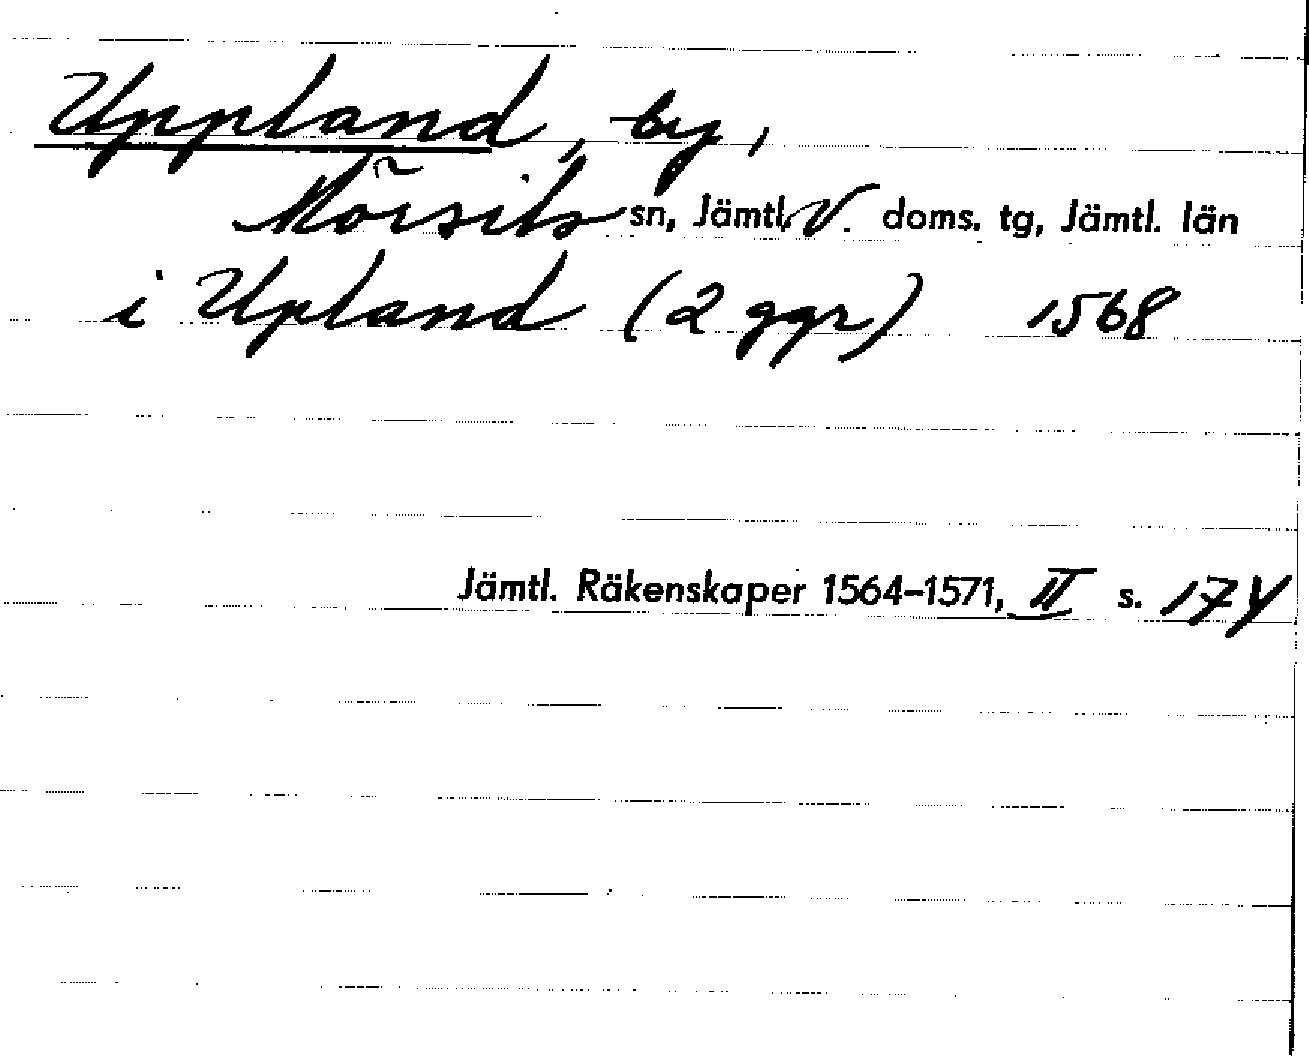 Uppland, by,
Mörsils sn, Jämtl. V. doms. tg, Jämtl. län
i Upland (2 ggr) 1568
Jämtl. Räkenskaper 1564-1571, II s. 174